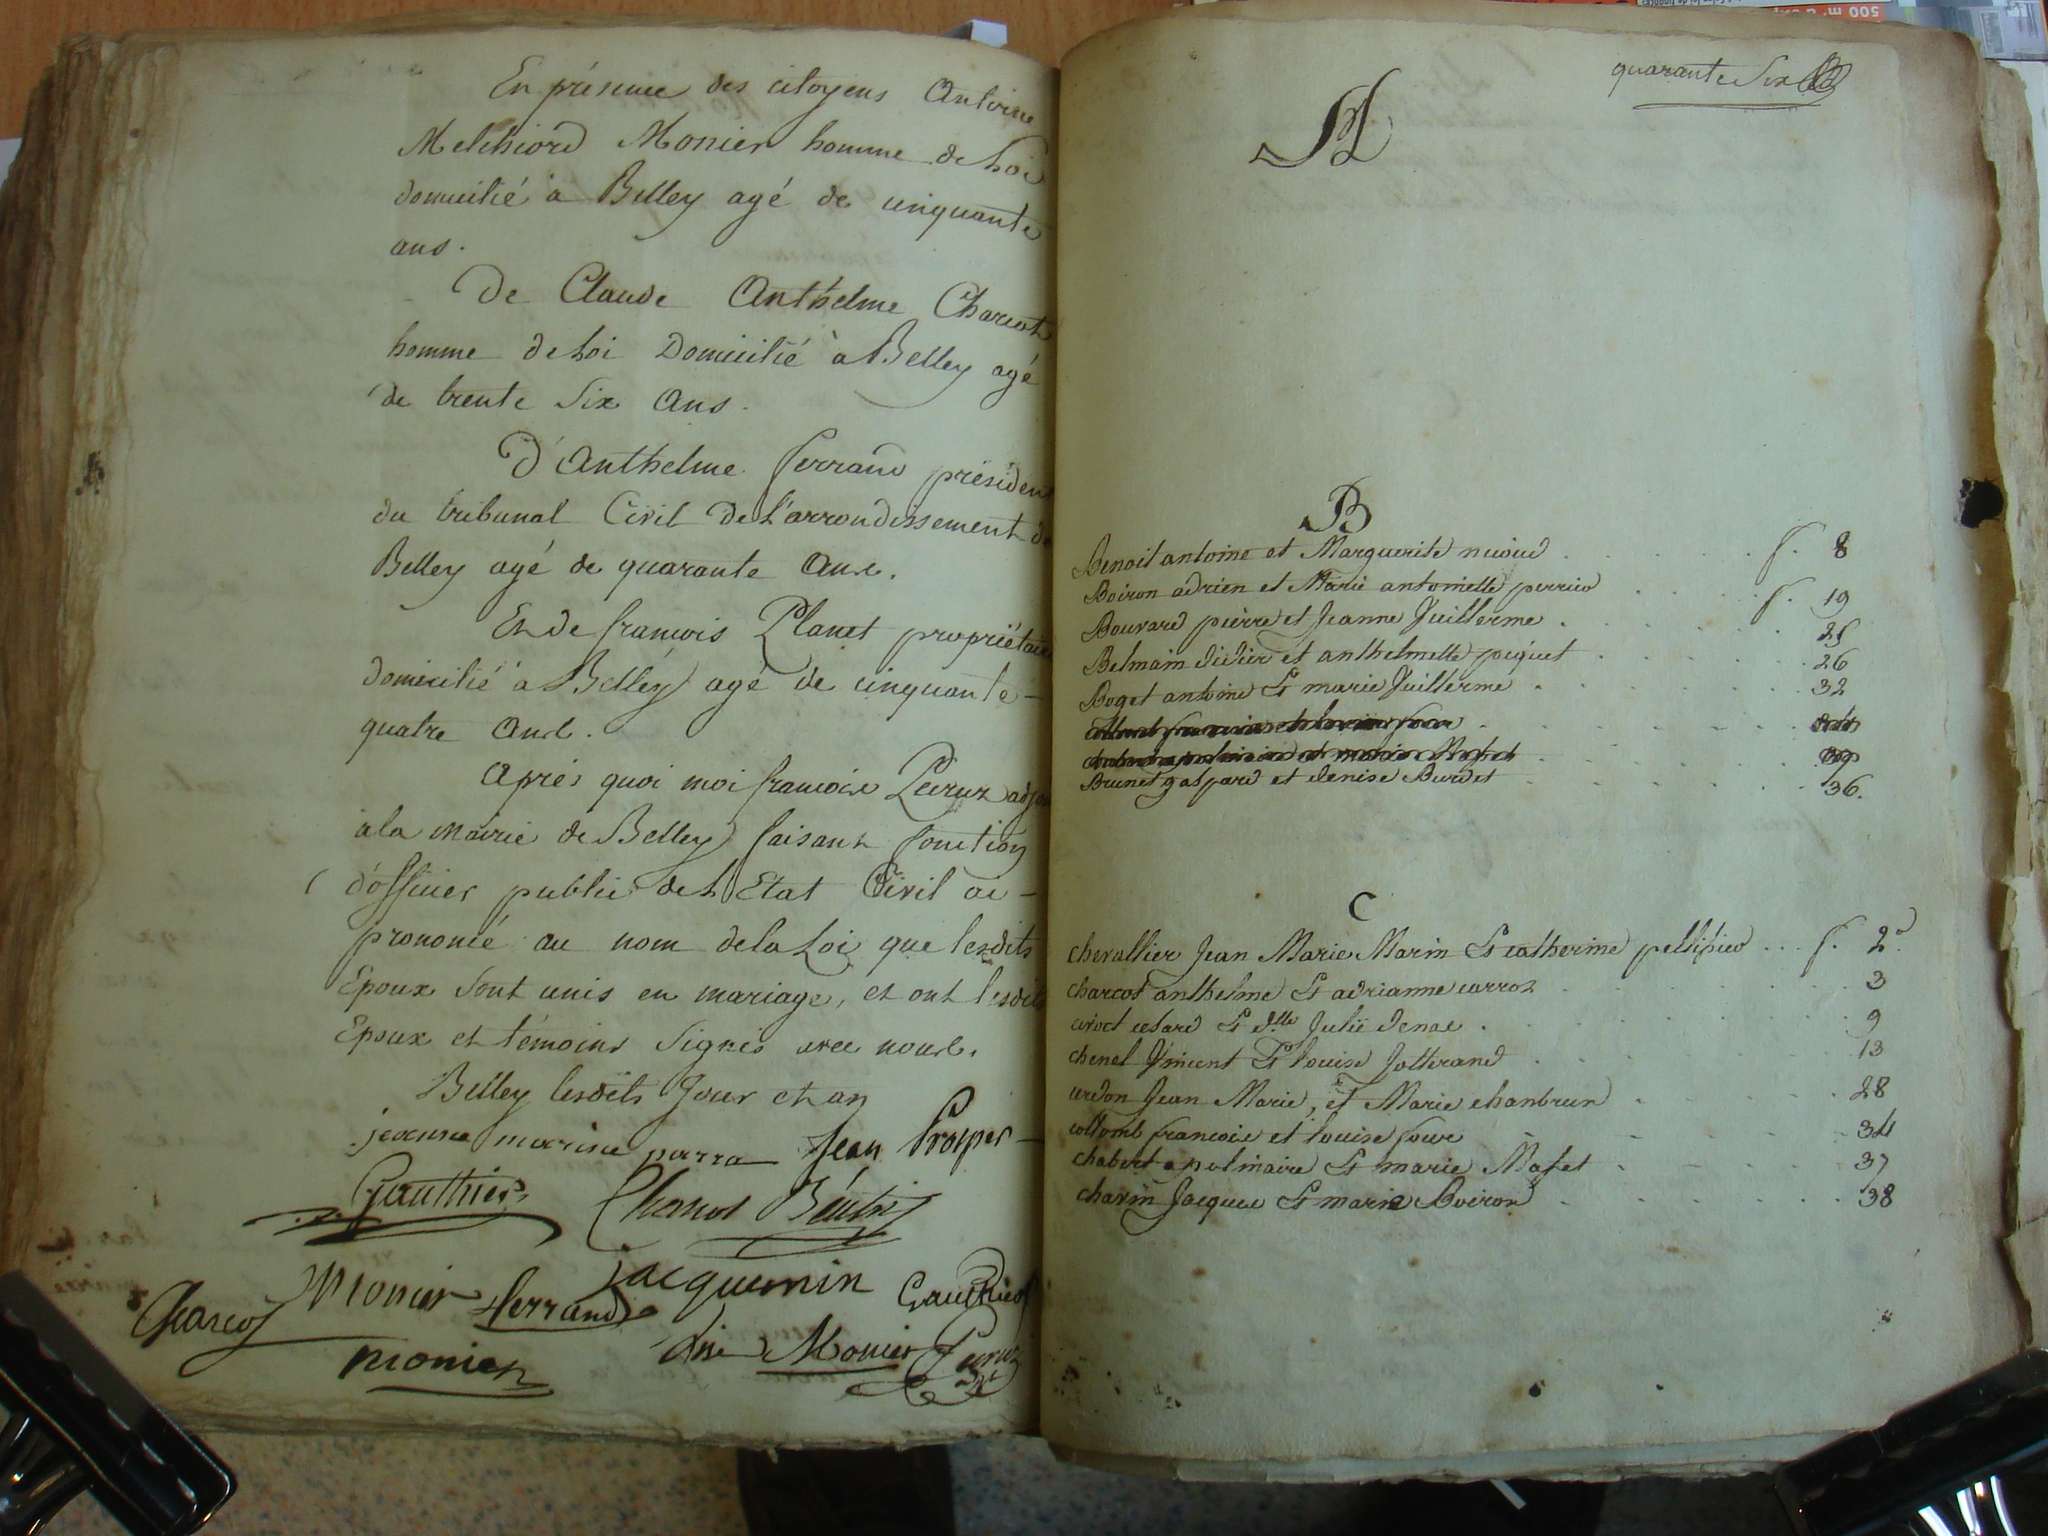 En présence des citoyens Antoine
Melchiord Monier homme de Loi
domicilié à Belley agé de cinquante
ans.
De Claude Anthelme Charcot
homme de Loi Domicilié à Belley agé
de trente Six Ans.
D'Anthelme ferrand président
du tribunal Civil De L'arrondissement de
Belley agé de quarante Ans.
Et de françois Planet propriétaire
domicilié à Belley agé de cinquante
quatre Ans.
Après quoi moi francois Peeruz adjoint
a la Mairie de Belley faisant fonction
d'officier public de L'Etat Civil ai
prononcé au nom de la Loi que lesdits
Epoux Sont unis en mariage, et ont lesdits
Epoux et témoins Signés avec nous.
Belley lesdits Jour et an
jeanne marine parra Jean Prosper
Gauthier
Jacquemin Gauthier
Charcot Monier ferrand
Monier
Monier
quarante Six
A
B
Benoit antoine et Marguerite . . . f. 8
Boiron adrien et Marie antoinette perrier . . . f. 19
Bouvard pierre et Jeanne Vuillerme . . . 25
Belmain didier et anthelmette pequet . . . 26
Boget antoine Et marie Vuillerme . . . 32
Brunet gaspard et denise Burdet . . . 36.
C
chevallier Jean Marie Marin Et catherine . . . f. 2
charcot anthelme Et adrianne carroz . . . 3
Et dlle Julie . . . 9
chenel Vincent Et louise Jolterand . . . 13
cerdon Jean Marie, et Marie chanbrun . . . 28
collomb francois et louise four . . . 34
chabert apolinaire Et marie Mafet . . . 37
charin Jacques Et marie Boiron . . . 38